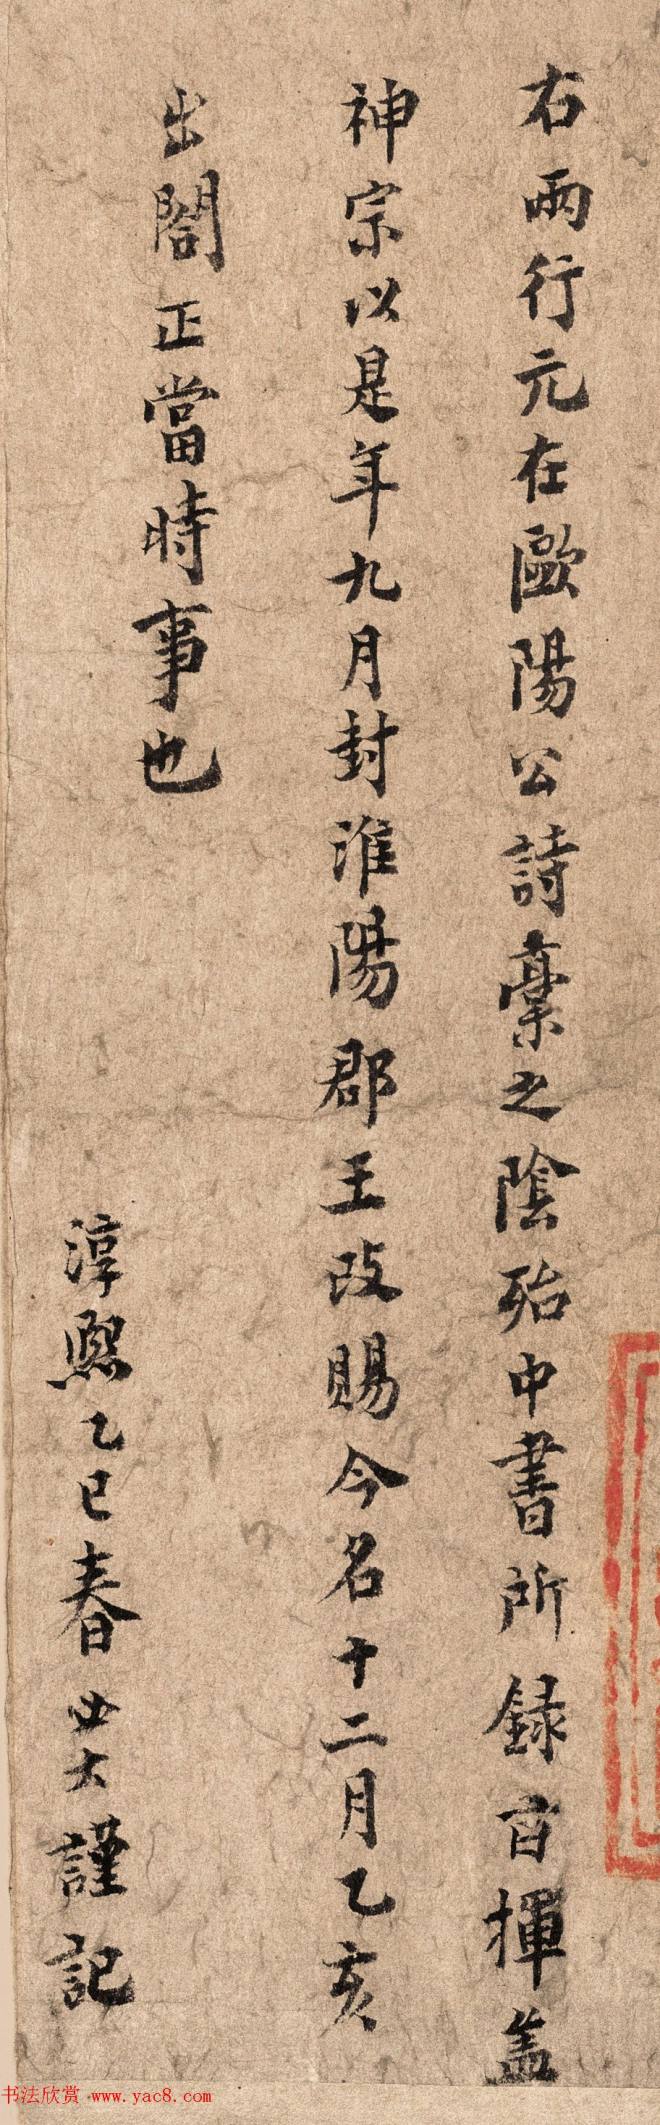 右兩行元在歐陽公詩稾之陰殆中書所録㫖揮盖
神宗以是年九月封淮陽郡王改賜今名十二月乙亥
出閤正當時事也
淳熙乙巳春 必大謹記
书法欣赏 www.yac8.com